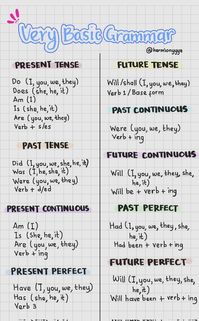 Very Basic Grammar
@haranlonyggs
PRESENT TENSE
Do (I, you, we, they)
Does (she, he, it)
Am (I)
Is (she, he, it)
Are (you, we, they)
Verb + s/es
PAST TENSE
Did (I, you, we, she, he, it)
Was (I, he, she, it)
Were (you, we, they)
Verb + d/ed
PRESENT CONTINUOUS
Am (I)
Is (she, he, it)
Are (you, we, they)
Verb + ing
PRESENT PERFECT
Have (I, you, we, they)
Has (she, he, it)
Verb 3
FUTURE TENSE
Will/shall (I, you, we, they)
Verb 1 / Base form
PAST CONTINUOUS
Were (you, we, they)
Verb + ing
FUTURE CONTINUOUS
Will (I, you, we, they, she,
he, it)
Will be + verb + ing
PAST PERFECT
Had (I, you, we, they, she,
he, it)
Had been + verb + ing
FUTURE PERFECT
Will (I, you, we, they, she,
he, it)
Will have been + verb + ing